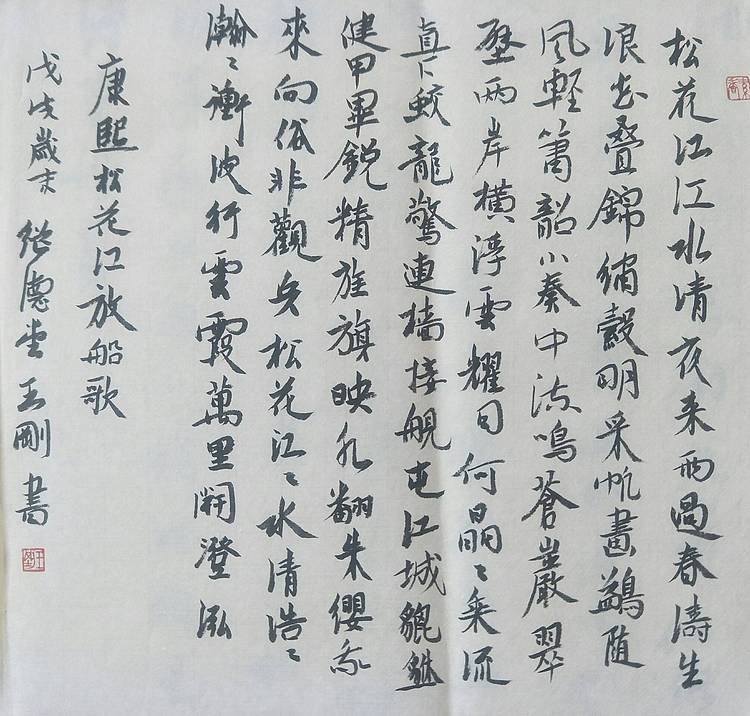 松花江江水清夜来雨過春濤生
浪花叠錦繡縠明采帆畫鷁随
風輕簫韶小奏中流鳴蒼巖翠
壁兩岸横浮雲耀日何晶〻乘流
直下蛟龍驚連檣接艦屯江城貔貅
健甲畢鋭精旌旗映水翻朱纓我
來向俗非觀兵松花江〻水清浩〻
瀚〻衝波行雲霞萬里開澄泓
康熙松花江放船歌
戊戌歲末继德堂王剛書